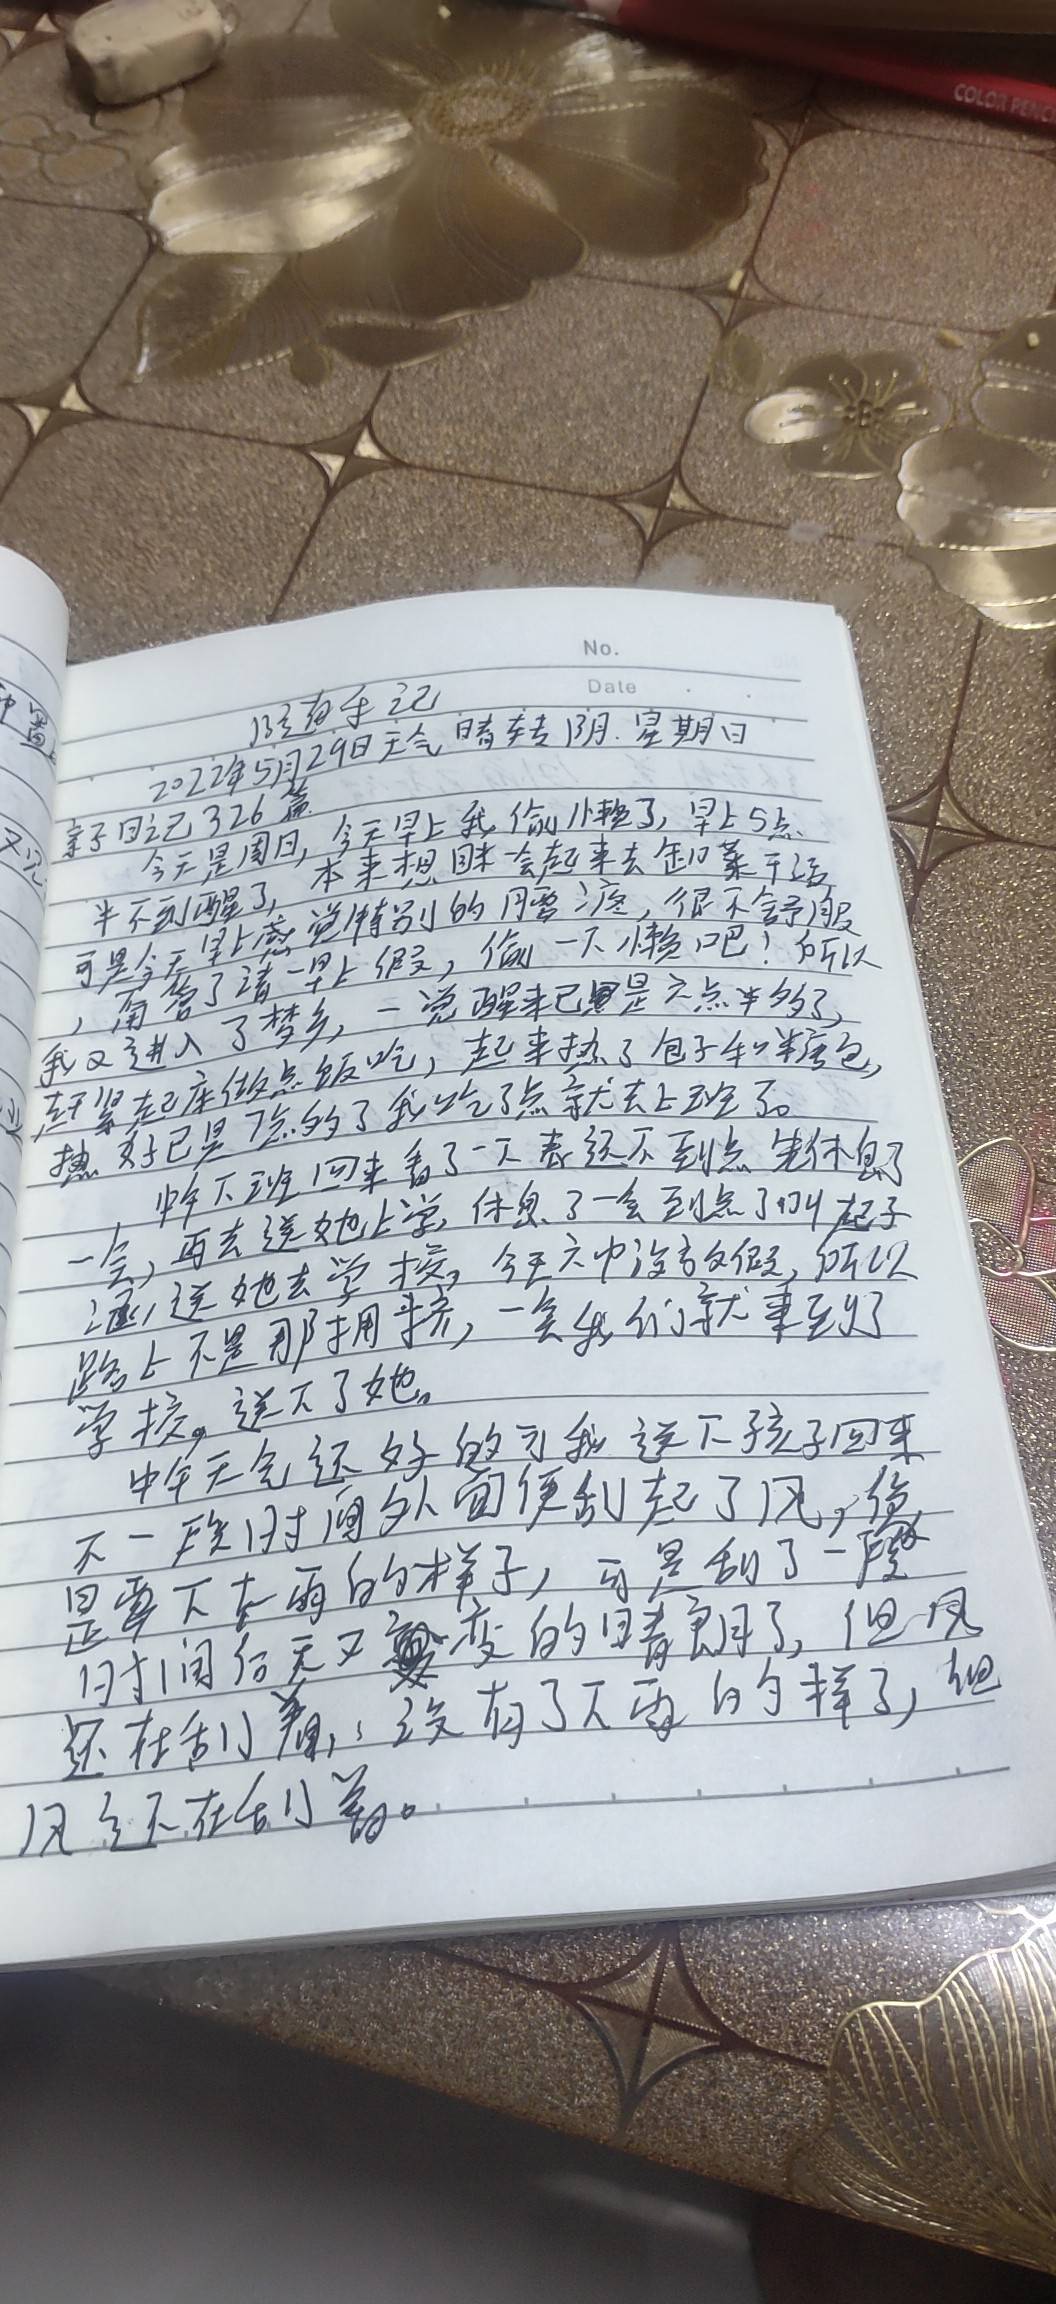 COLOR PENC
No.
Date
随 手记
2022年5月29日天气 晴转阴.星期日
亲子日记326篇
今天是周日,今天早上我偷懒了,早上5点
半不到醒了,本来想 会起来去卸菜干活
可是今天早上感觉特别的腰疼,很不舒服
,请一早上假,偷一下懒吧!所以
我又进入了梦乡,一觉醒来已是六点半多了,
赶紧起床做点饭吃,起来热了包子和糖包,
热好已是7点多了我吃了点就去上班了。
,中午下班回来看了一下表还不到点 先休息了
一会,再去送她上学,休息了一会到点了叫起子
涵,送她去学校,今天六中没有放假,所以
路上不是那拥挤,一会我们就来到了
学校,送下了她。
中午天气还好的可我送下孩子回来
不一段时间外面便刮起了风,像
是要下大雨的样子,可是刮了一段
时间后天又变的晴朗了,但风
还在刮着,没有了下雨的样子,但
风还在刮着。